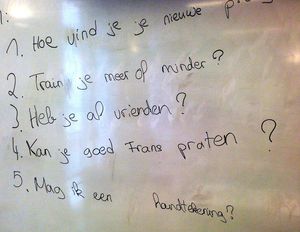 1. Hoe vind je je nieuwe
2. Train je meer of minder?
3. Heb je al vrienden?
4. Kan je goed Frans praten ?
5. Mag ik een handtekening?